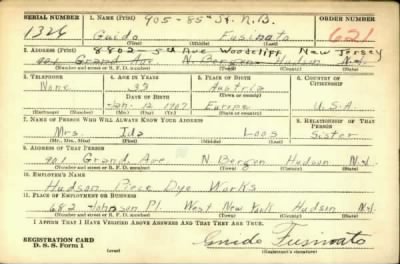 SERIAL NUMBER 1. NAME (Print) 905 - 85th St. N.B. ORDER NUMBER
1326 Guido Fusinato 621
(First) (Middle) (Last)
2. ADDRESS (Print) 8802 - 5th Ave Woodcliff New Jersey
901 Grand Ave. N. Bergen Hudson N.J.
(Number and street or R. F. D. number) (Town) (County) (State)
3. TELEPHONE 4. AGE IN YEARS 5. PLACE OF BIRTH 6. COUNTRY OF CITIZENSHIP
None 33 Austria
DATE OF BIRTH (Town or county)
Jan. 12 1907 Europe U.S.A.
(Exchange) (No.) (Mo.) (Day) (Yr.) (State or country)
7. NAME OF PERSON WHO WILL ALWAYS KNOW YOUR ADDRESS 8. RELATIONSHIP OF THAT PERSON
Mrs. Ida Loos Sister
(Mr., Mrs., Miss) (First) (Middle) (Last)
9. ADDRESS OF THAT PERSON
901 Grand Ave N. Bergen Hudson N.J.
(Number and street or R. F. D. number) (Town) (County) (State)
10. EMPLOYER'S NAME
Hudson Piece Dye Works
11. PLACE OF EMPLOYMENT OR BUSINESS
682 Johnson Pl. West New York Hudson N.J.
(Number and street or R. F. D. number) (Town) (County) (State)
I AFFIRM THAT I HAVE VERIFIED ABOVE ANSWERS AND THAT THEY ARE TRUE.
REGISTRATION CARD
D. S. S. Form 1 (over) Guido Fusinato
(Registrant's signature)